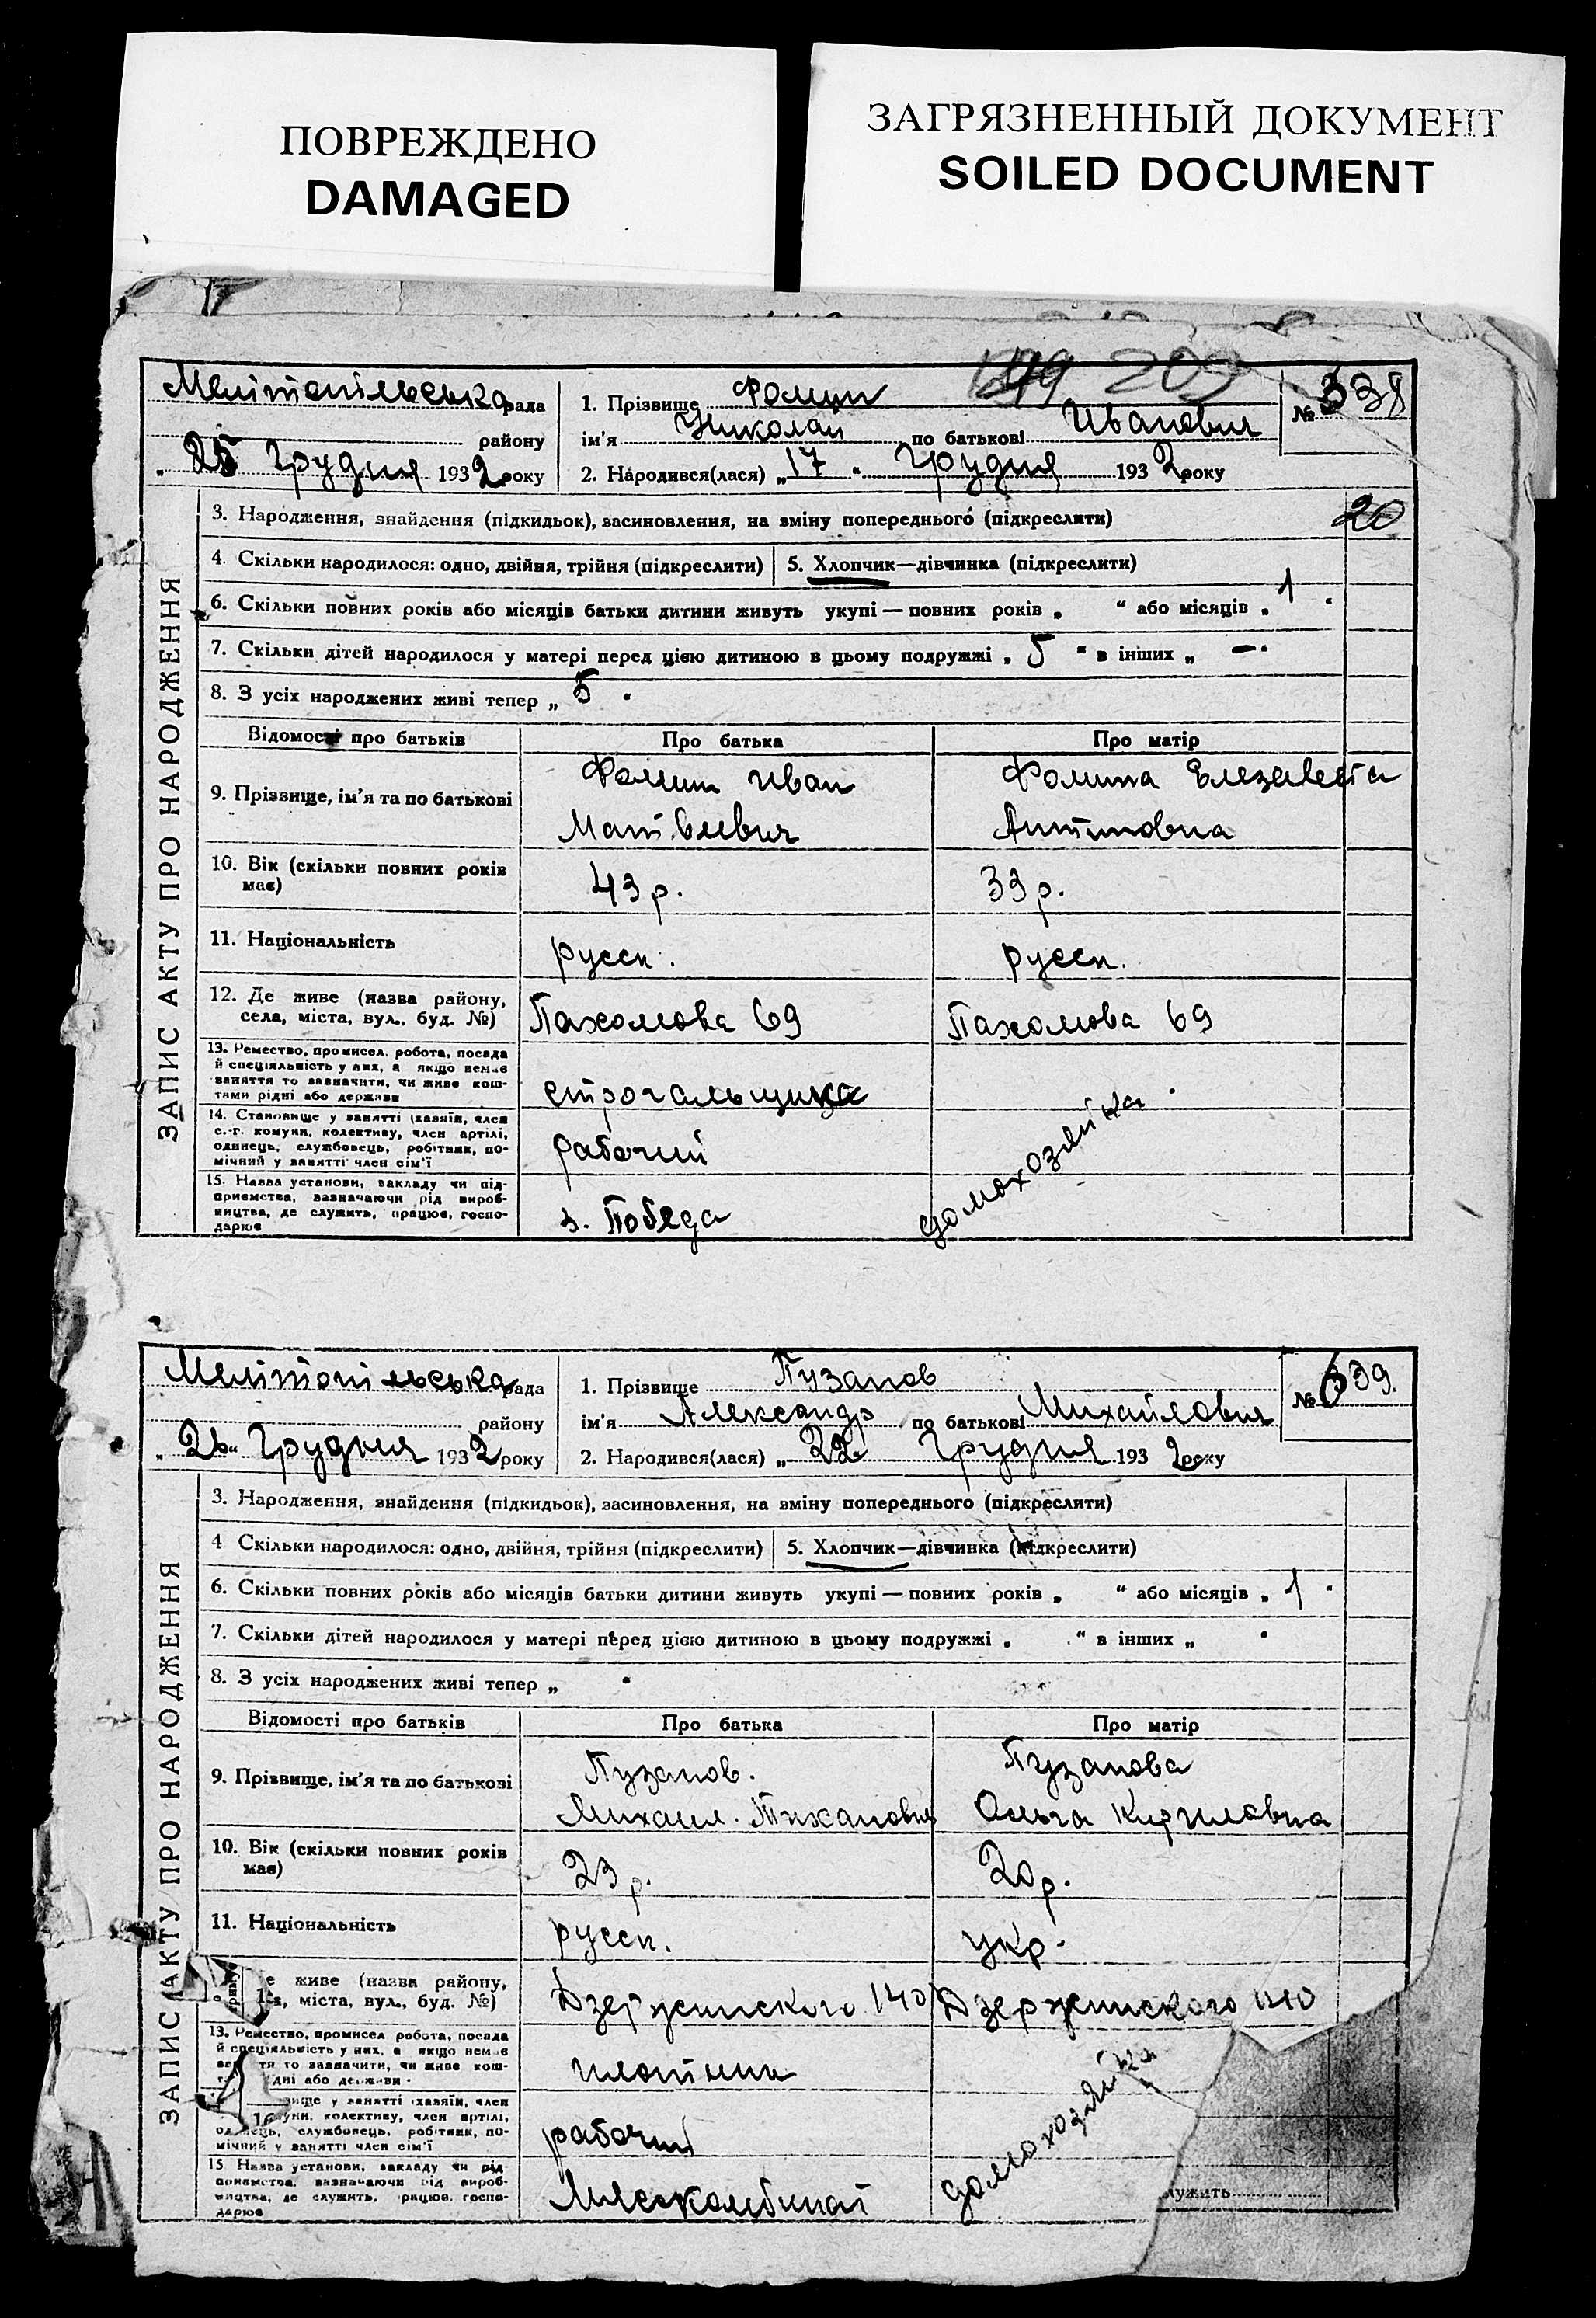 ПОВРЕЖДЕНО
DAMAGED
ЗАГРЯЗНЕННЫЙ ДОКУМЕНТ
SOILED DOCUMENT
209
Мелітопільська рада
району
„ 25 Грудня 1932 року
1. Прізвище Фомин
ім'я Николай по батькові Иванович
2. Народився(лася) „ 17 " Грудня 1932 року
№ 638
ЗАПИС АКТУ ПРО НАРОДЖЕННЯ
3. Народження, знайдення (підкидьок), засиновлення, на зміну попереднього (підкреслити)
20
4. Скільки народилося: одно, двійня, трійня (підкреслити)
5. Хлопчик—дівчинка (підкреслити)
6. Скільки повних років або місяців батьки дитини живуть укупі — повних років „ " або місяців „ 1 "
7. Скільки дітей народилося у матері перед цією дитиною в цьому подружжі „ 5 " в інших „ — "
8. З усіх народжених живі тепер „ 5 "
Відомості про батьків
Про батька
Про матір
9. Прізвище, ім'я та по батькові
Фомин Иван
Фомина Елезавета
10. Вік (скільки повних років
має)
43 р.
33 р.
11. Національність
русск.
русск.
12. Де живе (назва району,
села, міста, вул., буд. №)
Пахомова 69
Пахомова 69
13. Ремество, промисел, робота, посада
й спеціяльність у них, а якщо немає
заняття то зазначити, чи живе кош-
тами рідні або держави
строгальщик
домохозяйка
14. Становище у занятті (хазяїн, член
с.-г. комуни, колективу, член артілі,
одинець, службовець, робітник, по-
мічний у занятті член сім'ї
рабочий
15. Назва установи, закладу чи під-
приємства, зазначаючи рід вироб-
ництва, де служить, працює, госпо-
дарює
з. Победа
Мелітопільська рада
району
„ 26 " Грудня 1932 року
1. Прізвище Пузанов
ім'я Александр по батькові Михайлович
2. Народився(лася) „ 22 Грудня 1932 року
№ 639.
ЗАПИС АКТУ ПРО НАРОДЖЕННЯ
3. Народження, знайдення (підкидьок), засиновлення, на зміну попереднього (підкреслити)
4. Скільки народилося: одно, двійня, трійня (підкреслити)
5. Хлопчик—дівчинка (підкреслити)
6. Скільки повних років або місяців батьки дитини живуть укупі — повних років „ " або місяців „ 1 "
7. Скільки дітей народилося у матері перед цією дитиною в цьому подружжі „ " в інших „ "
8. З усіх народжених живі тепер „ "
Відомості про батьків
Про батька
Про матір
9. Прізвище, ім'я та по батькові
Пузанов.
Михаил. Тиханович
Пузанова
Ольга Кириловна
10. Вік (скільки повних років
має)
23 р.
20 р.
11. Національність
русск.
укр.
е живе (назва району,
міста, вул., буд. №)
Дзержинского 140
Дзержинского 140
13. Ремество, промисел робота, посада
й спеціяльність у них, а якщо немає
тя то зазначити, чи живе кош-
дні або держави
плотник
домохозяйка
вище у занятті (хазяїн, член
уни, колективу, член артілі,
одинець, службовець, робітник, по-
мічний у занятті член сім'ї
рабочий
15. Назва установи, закладу чи під-
приємства, зазначаючи рід вироб-
ництва, де служить, працює, госпо-
дарює
Мясокомбинат
лужить